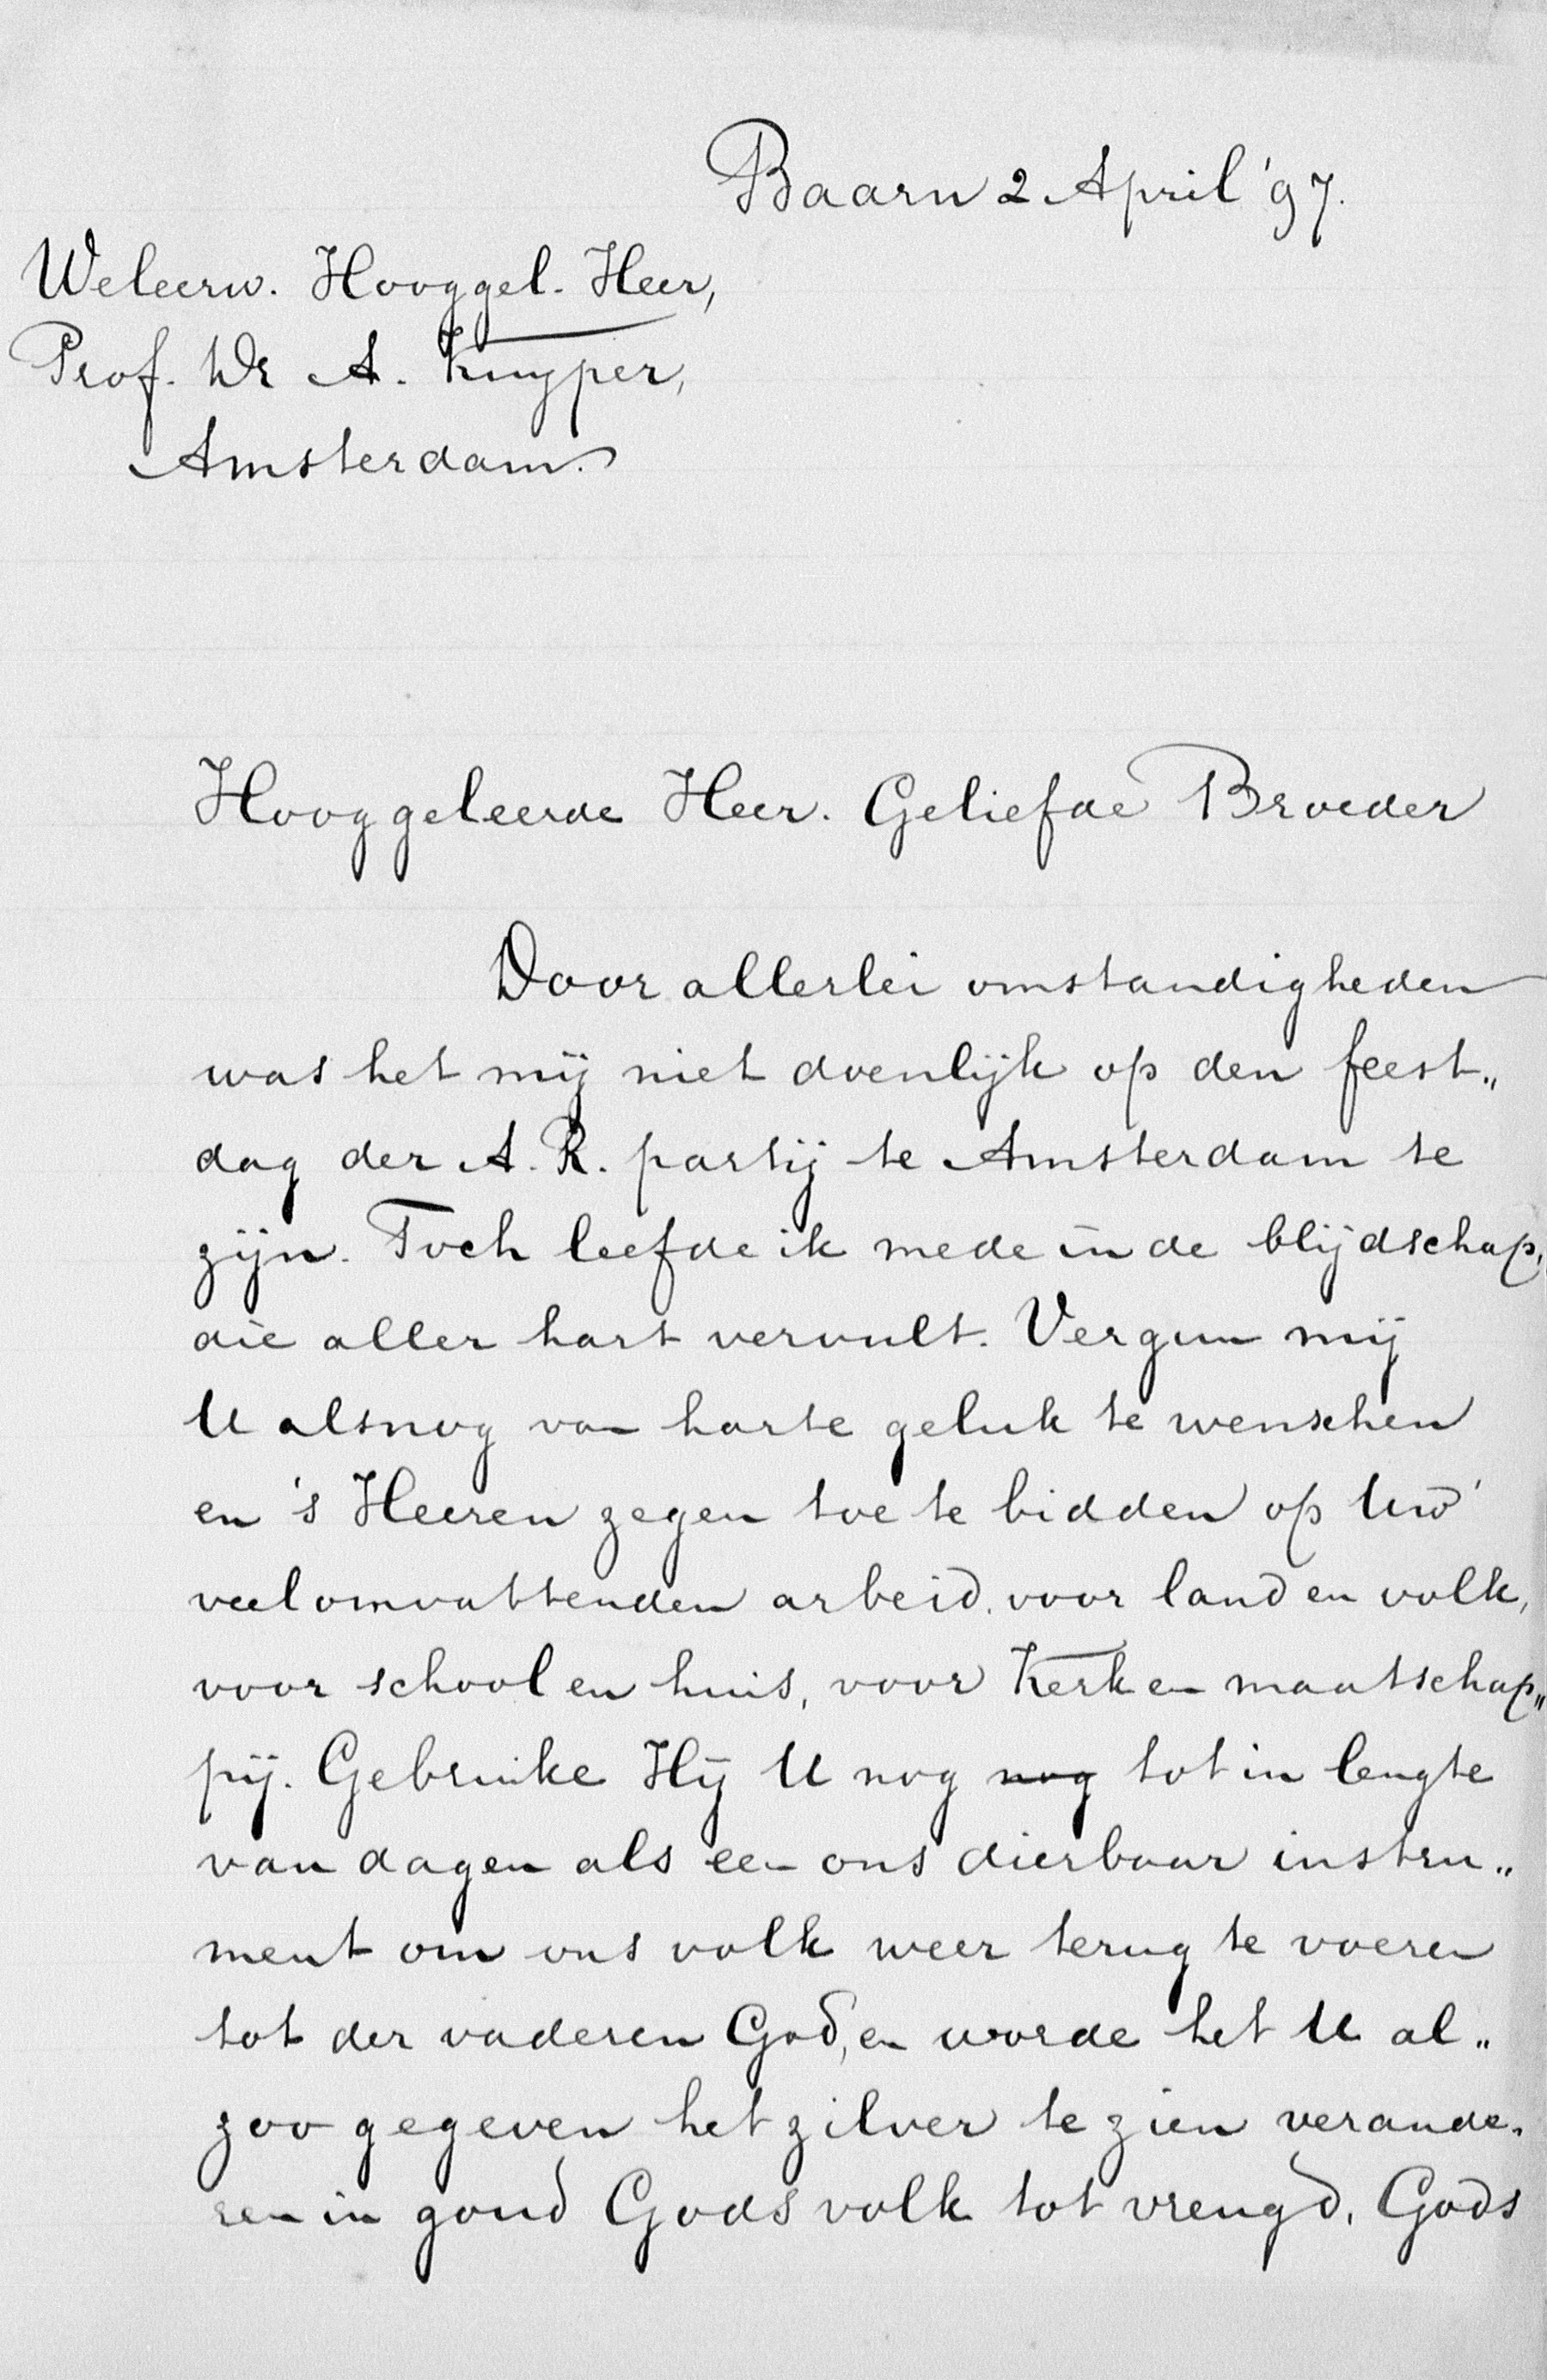 Baarn 2 April '97.
Weleerw. Hooggel. Heer,
Prof. Dr A. Kuyper,
Amsterdam.
Hooggeleerde Heer. Geliefde Broeder
Door allerlei omstandigheden
was het mij niet doenlijk op den feest„
dag der A. R. partij te Amsterdam te
zijn. Toch leefde ik mede in de blijdschap,
die aller hart vervult. Vergun mij
U alsnog van harte geluk te wenschen
en 's Heeren zegen toe te bidden op Uw
veelomvattenden arbeid, voor land en volk,
voor school en huis, voor Kerk en maatschap„
pij. Gebruike Hij U nog nog tot in lengte
van dagen als een ons dierbaar instru„
ment om ons volk weer terug te voeren
tot der vaderen God, en worde het U al„
zoo gegeven het zilver te zien verande„
ren in goud Gods volk tot vreugd, Gods